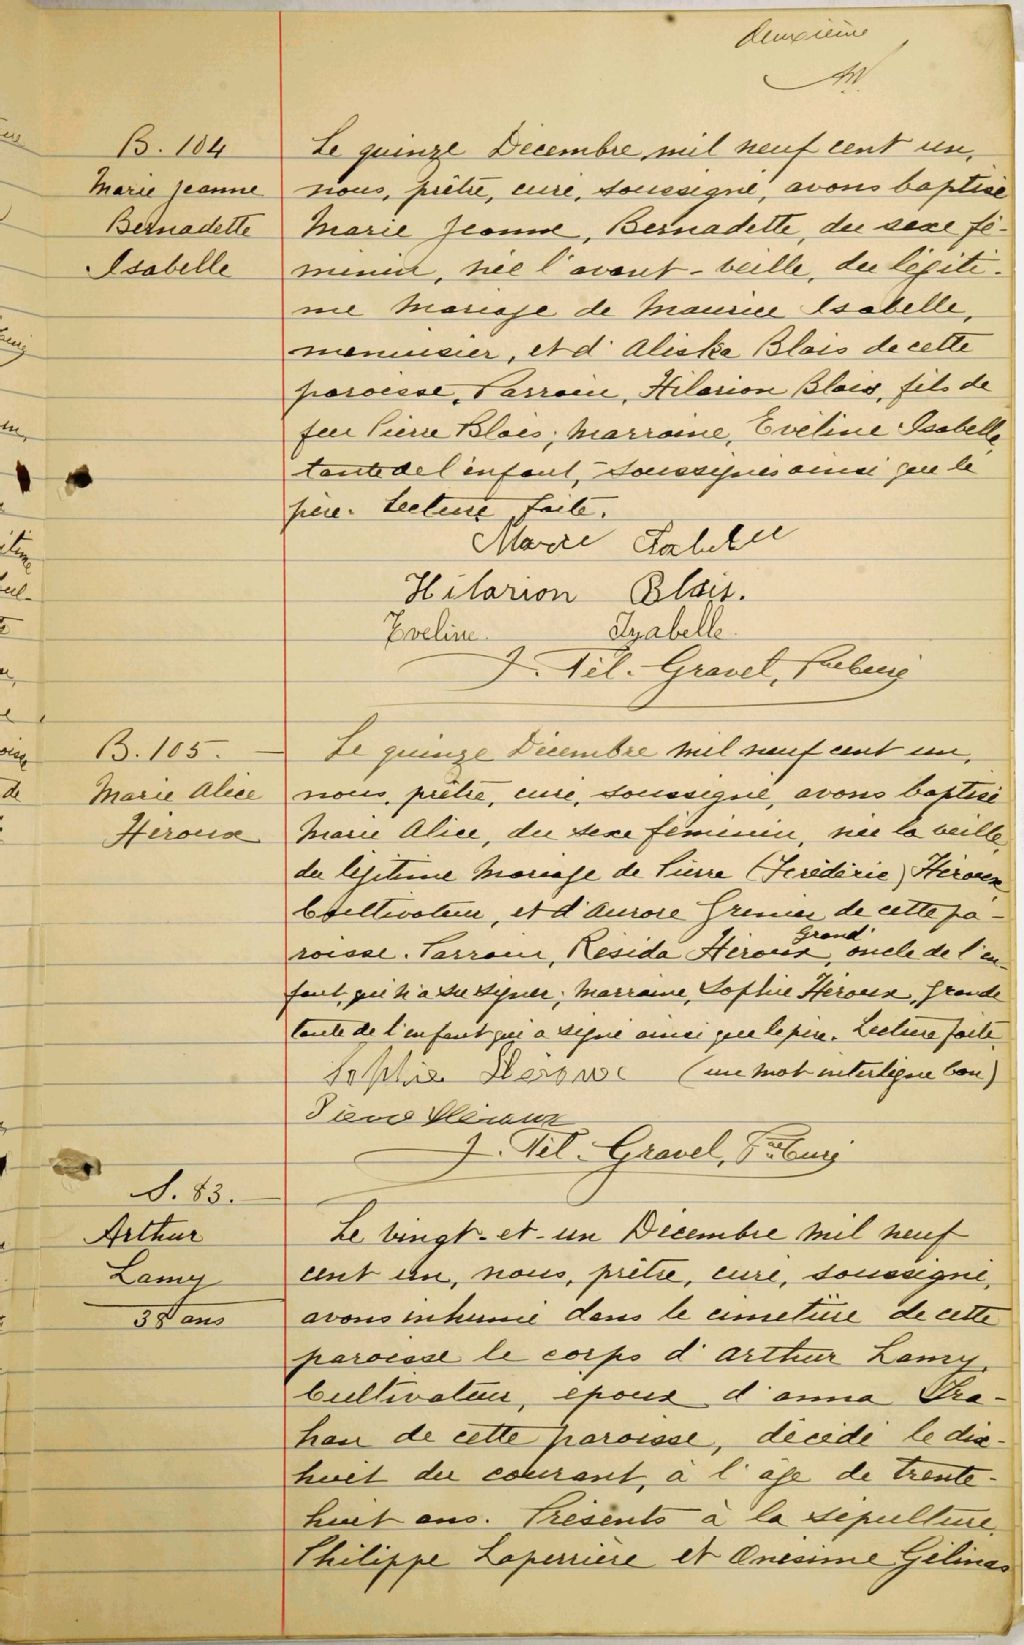 deuxième
B. 104
Marie Jeanne
Bernadette
Isabelle
Le quinze Décembre mil neuf cent un,
nous, prêtre, curé, soussigné, avons baptisé
Marie Jeanne, Bernadette, du sexe fé-
minin, née l'avant-veille, du légiti-
me mariage de Maurice Isabelle,
menuisier, et d'Aliska Blais de cette
paroisse. Parrain, Hilarion Blais, fils de
feu Pierre Blais; marraine, Evéline Isabelle,
tante de l'enfant, soussignés ainsi que le
père. Lecture faite.
Hilarion Blais.
Eveline Izabelle
J. Tél. Gravel, Ptre Curé
B. 105.
Marie Alice
Héroux
Le quinze Décembre mil neuf cent un,
nous, prêtre, curé, soussigné, avons baptisé
Marie Alice, du sexe féminin, née la veille,
du légitime mariage de Pierre (Frédéric) Héroux
Cultivateur, et d'Aurore Grenier de cette pa-
roisse. Parrain, Résida Héroux, grand oncle de l'en-
fant, qui n'a su signer; marraine, Sophie Héroux, grande
tante de l'enfant qui a signé ainsi que le père. Lecture faite.
Sophie Héroux (un mot interligne bon)
Pierre Héroux
J. Tél. Gravel, Ptre Curé
S. 83.
Arthur
Lamy
38 ans
Le vingt-et-un Décembre mil neuf
cent un, nous, prêtre, curé, soussigné,
avons inhumé dans le cimetière de cette
paroisse le corps d'Arthur Lamy,
Cultivateur, époux d'Anna Tra-
han de cette paroisse, décédé le dix-
huit du courant, à l'âge de trente-
huit ans. Présents à la sépulture,
Philippe Laperrière et Onésime Gélinas